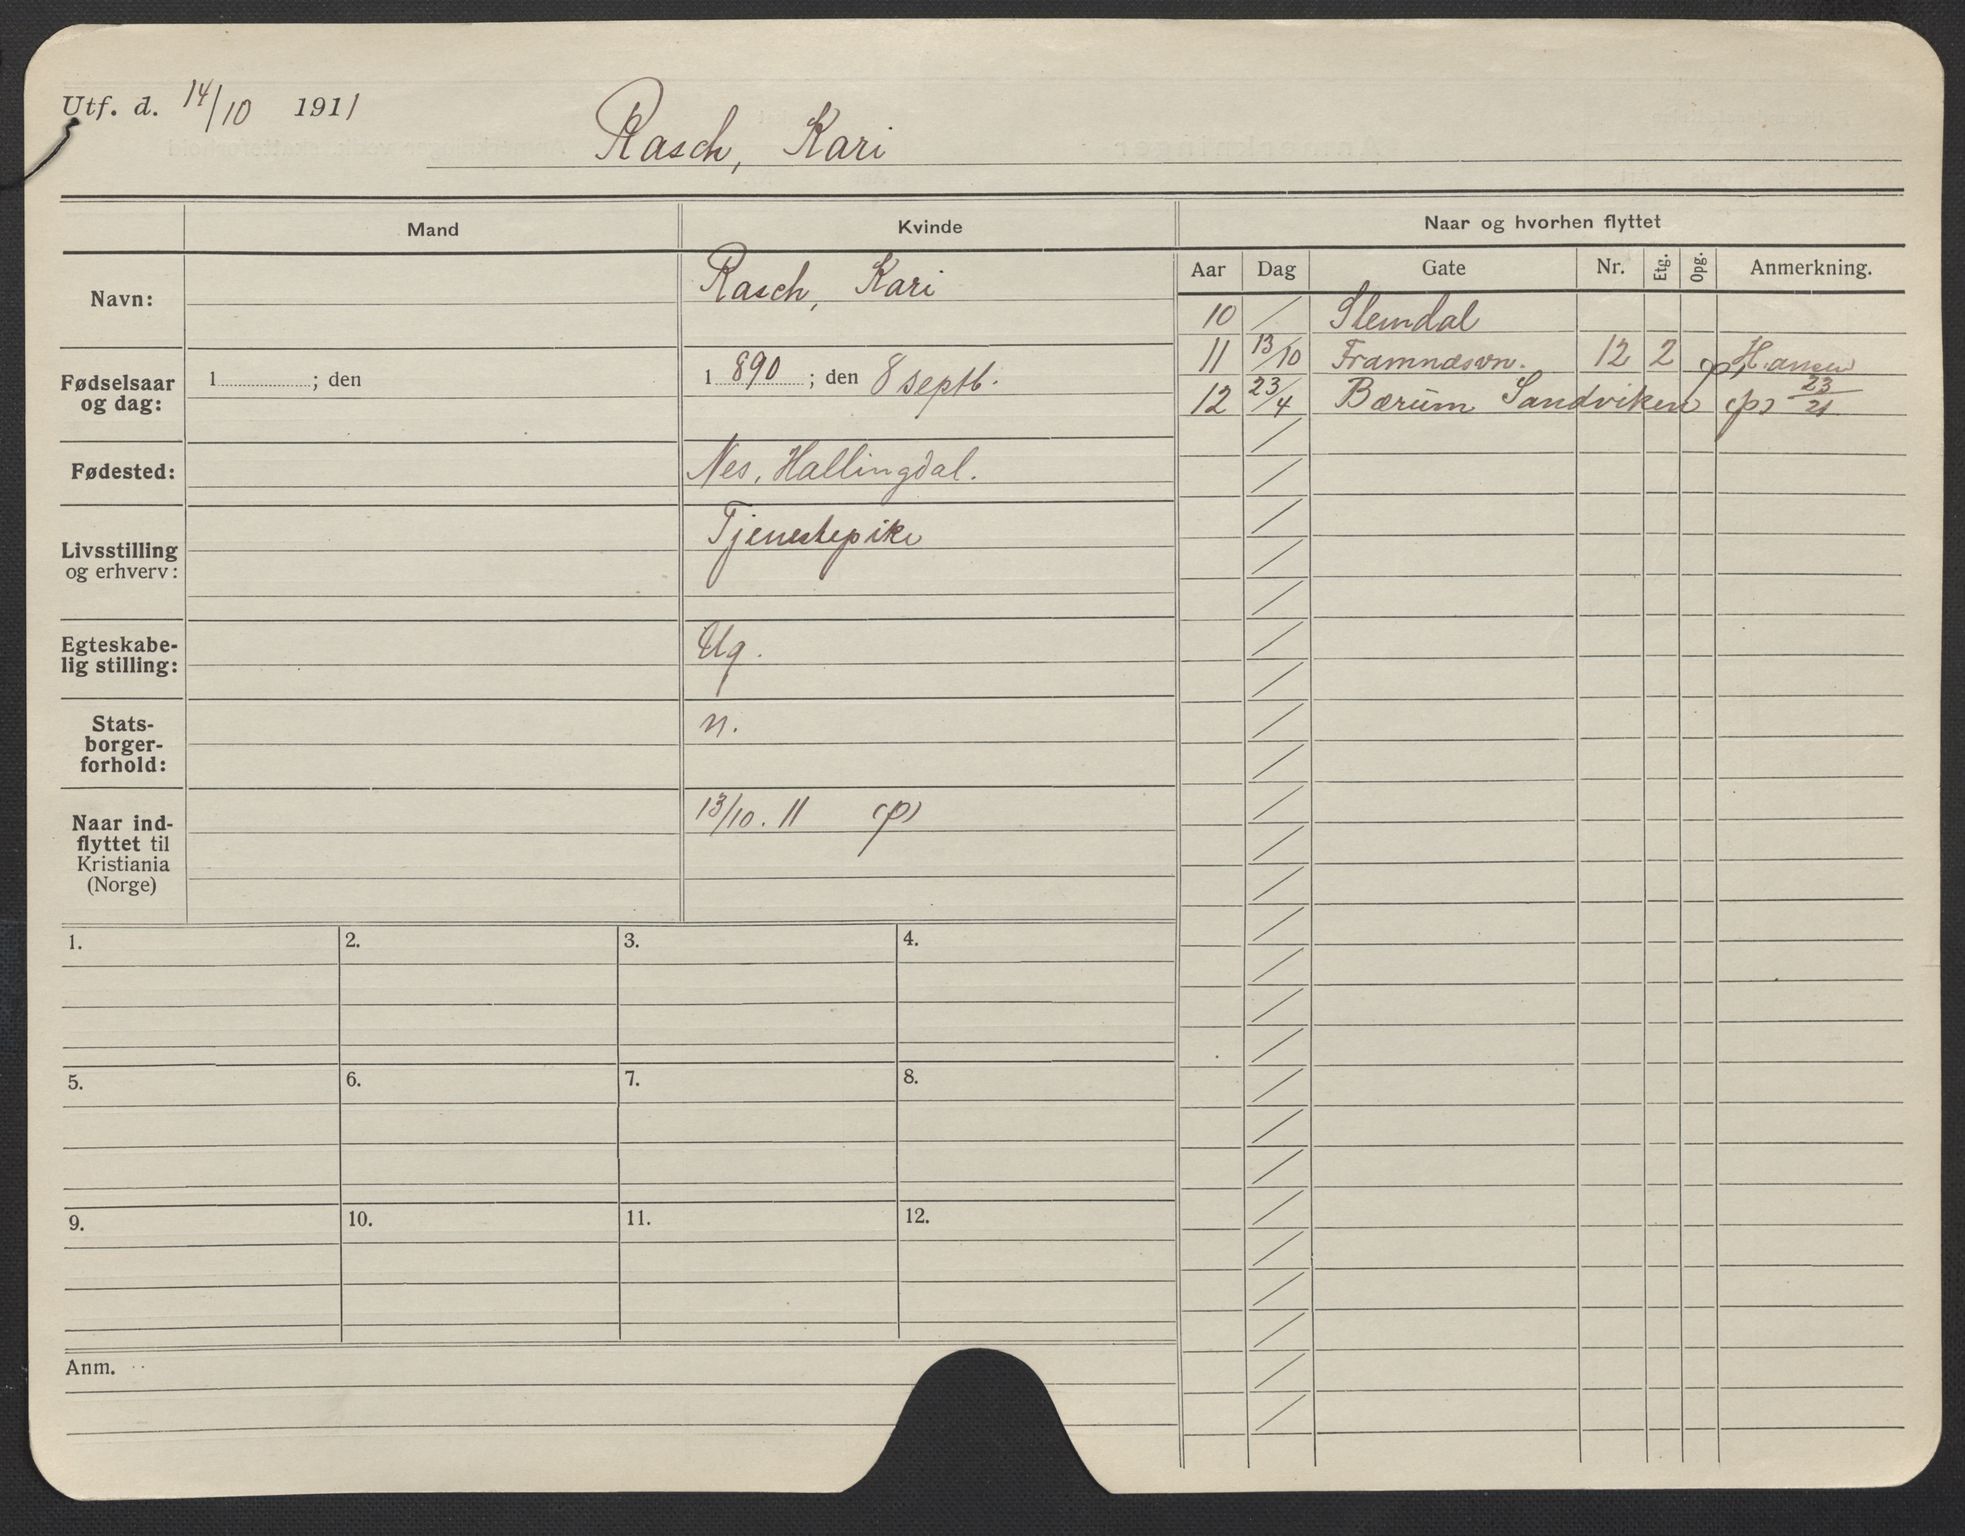 Utf. d. 14/10 1911
Rasch, Kari
Mand
Kvinde
Naar og hvorhen flyttet
Aar Dag Gate Nr. Etg. Opg. Anmerkning.
Navn:
Rasch, Kari
10 / Slemdal
11 13/10 Framnæsvn. 12 2 Hansen
12 23/4 Bærum Sandviken 23/21
Fødselsaar
og dag:
1 ; den
1 890 ; den 8 septb.
Fødested:
Nes, Hallingdal.
Livsstilling
og erhverv:
Tjenestepike
Egteskabe-
lig stilling:
Ug.
Stats-
borger-
forhold:
n.
Naar ind-
flyttet til
Kristiania
(Norge)
13/10. 11
1. 2. 3. 4.
5. 6. 7. 8.
9. 10. 11. 12.
Anm.